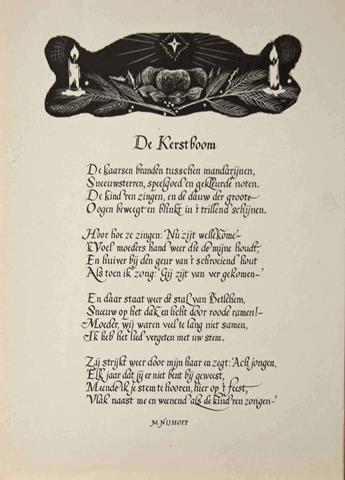 De Kerstboom
De kaarsen branden tusschen mandarijnen,
Sneeuwsterren, speelgoed en gekleurde noten.
De kind'ren zingen, en de dauw der groote
Oogen beweegt en blinkt in 't trillend schijnen.
Hoor hoe ze zingen: 'Nu zijt wellekome-'
'k Voel moeders hand weer die de mijne houdt,
En huiver bij den geur van 't schroeiend hout
Als toen ik zong: 'Gij zijt van ver gekomen-'
En daar staat weer de stal van Bethlehem,
Sneeuw op het dak en licht door roode ramen!-
Moeder, wij waren veel te lang niet samen,
Ik heb het lied vergeten met uw stem.
Zij strijkt weer door mijn haar en zegt: 'Ach jongen,
Elk jaar dat jij er niet bent bij geweest,
Meende ik je stem te hooren, hier op 't feest,
Vlak naast me en weenend als de kind'ren zongen-'
M. NIJHOFF